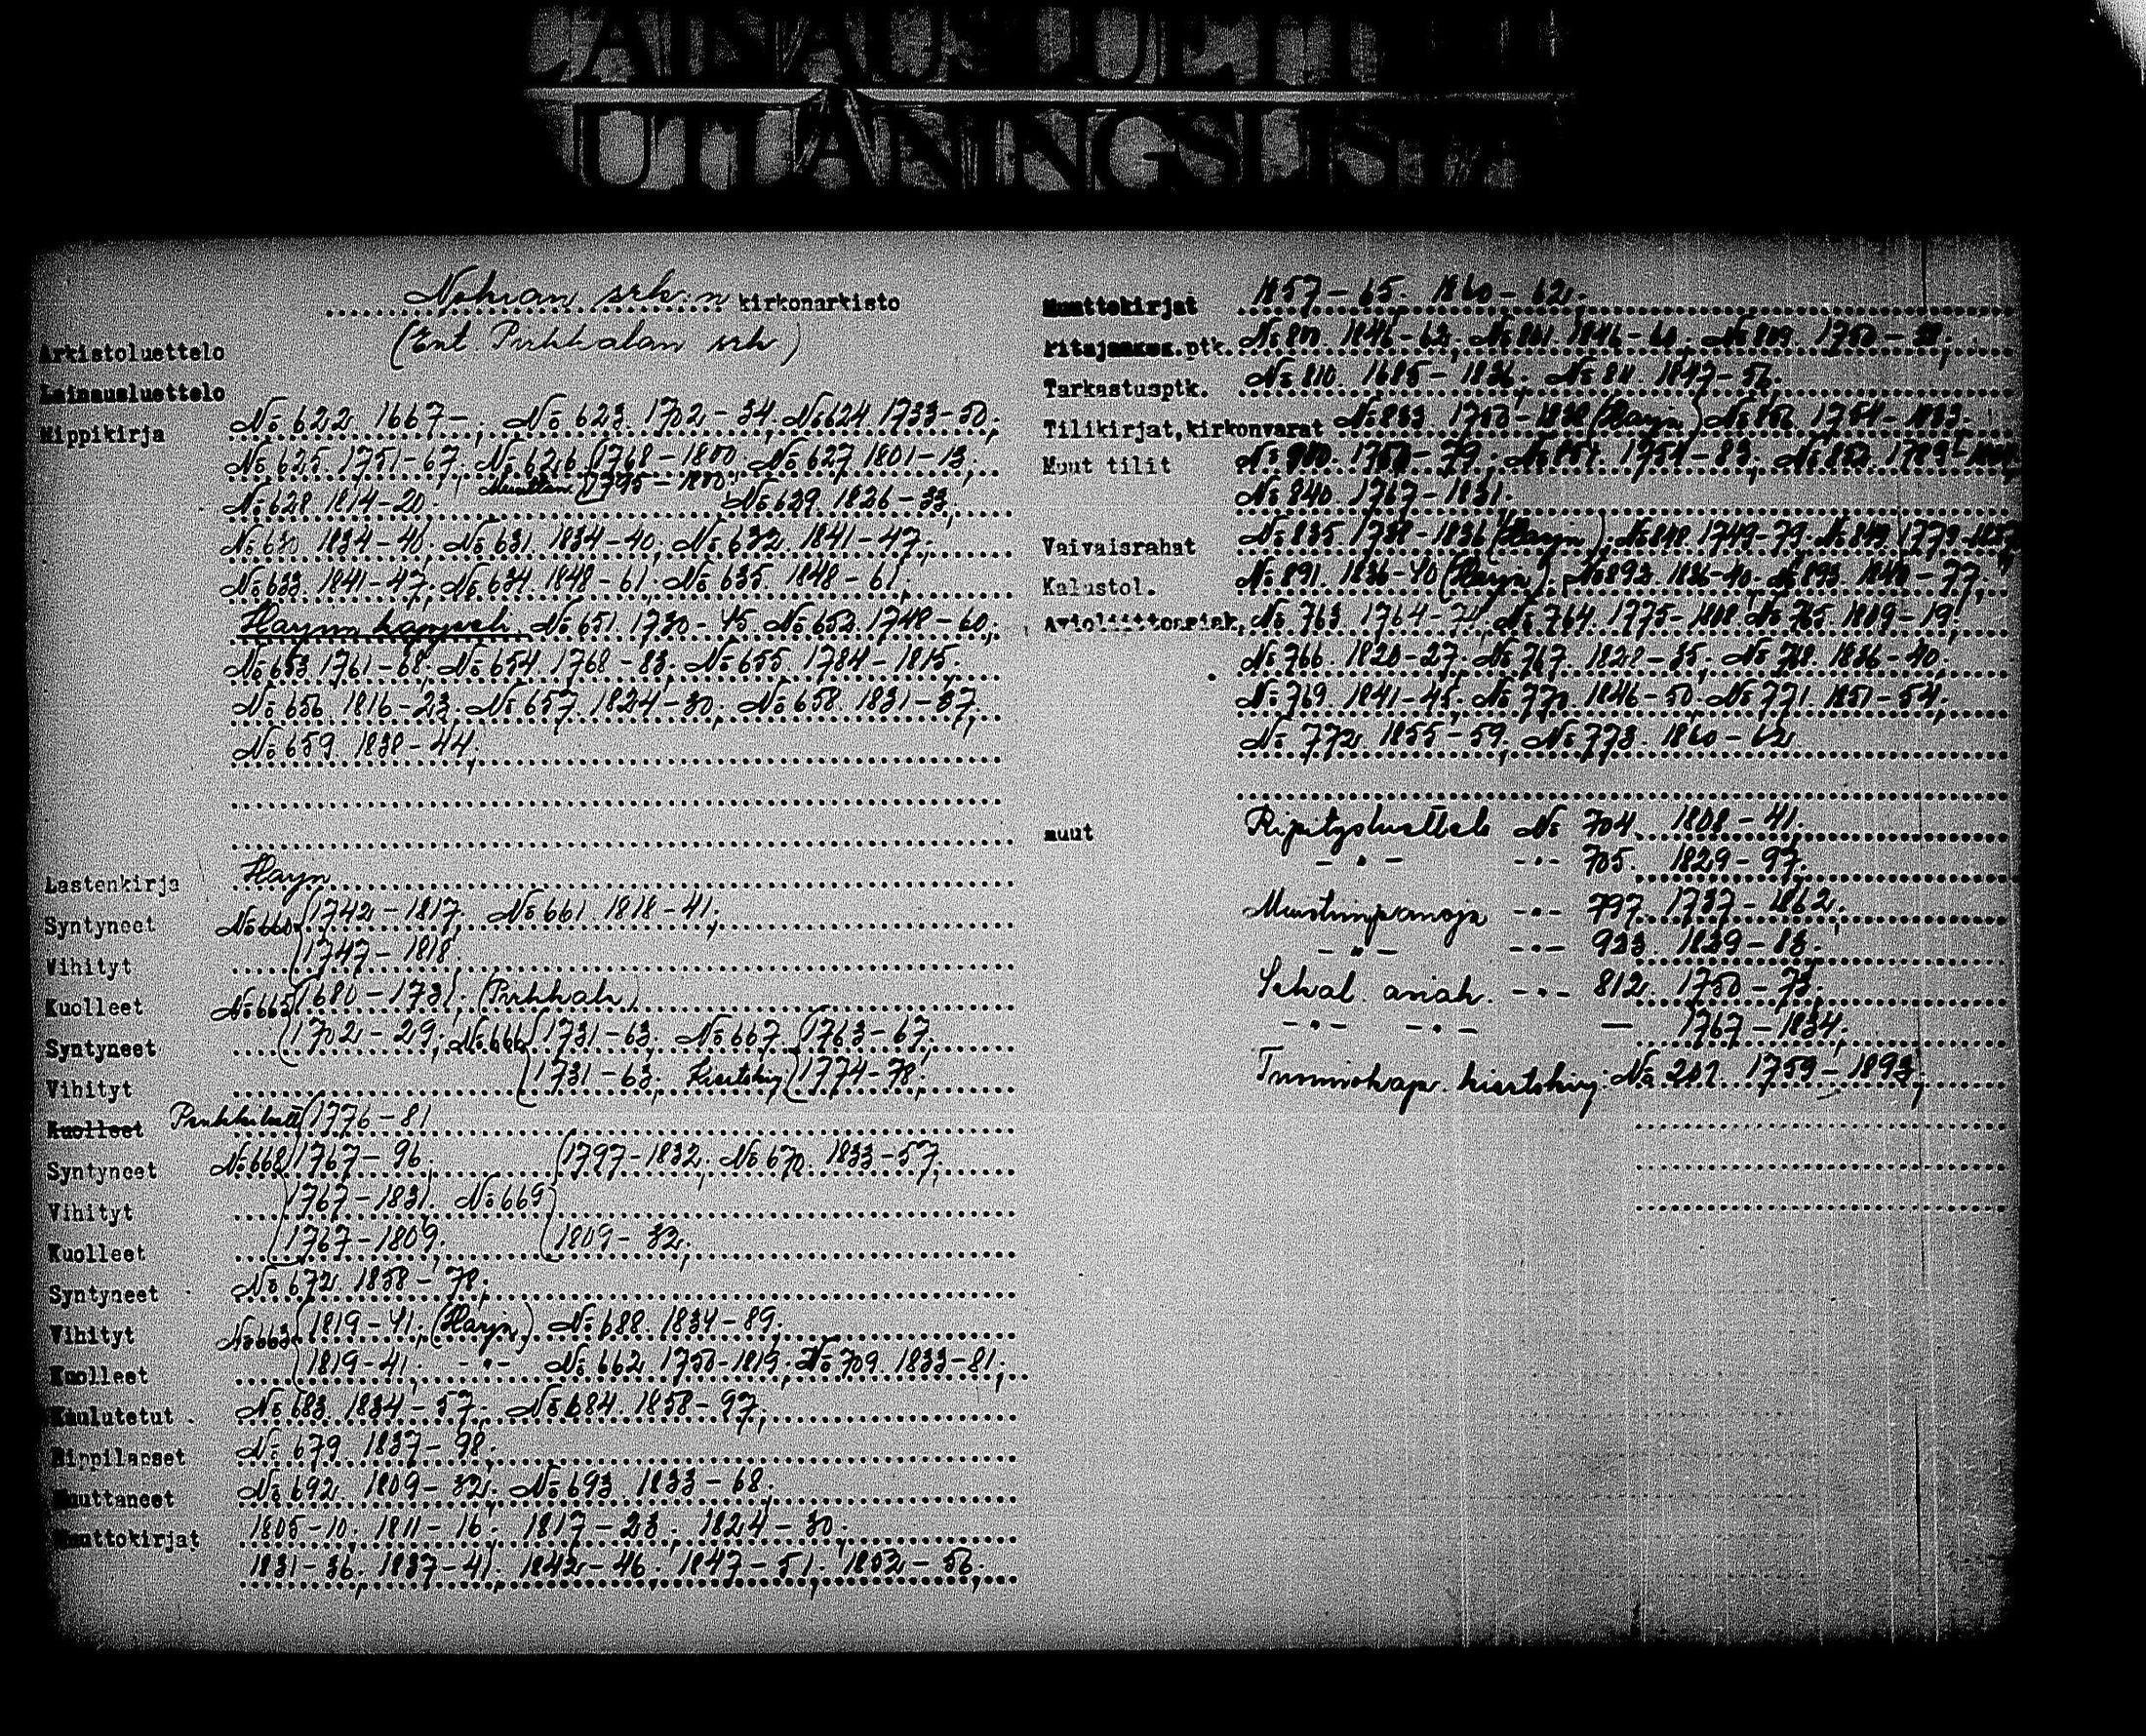 LAINAUSLUETTELO
UTLÅNINGSLISTA
Nokian srk:n kirkonarkisto
(Ent. Pirkkalan srk)
Arkistoluettelo
Lainausluettelo
Rippikirja No 622. 1667-; No 623. 1702-34, No 624. 1733-50;
No 625. 1751-67; No 626 (1768-1800; No 627. 1801-13;
1795-1800;
No 628. 1814-20; No 629. 1826-33,
No 630. 1834-40; No 631. 1834-40; No 632. 1841-47;
No 633. 1841-47; No 634. 1848-61; No 635. 1848-61;
Harjun kappeli No 651. 1730-45. No 652. 1748-60;
No 653. 1761-68; No 654. 1768-83; No 655. 1784-1815;
No 656. 1816-23; No 657. 1824-30; No 658. 1831-37,
No 659. 1838-44;
Lastenkirja Harju
Syntyneet No 660 (1742-1817; No 661. 1818-41;
Vihityt (1747-1818.
Kuolleet No 665 (1680-1731. (Pirkkala)
Syntyneet (1702-29; No 666 (1731-63; No 667 (1763-67;
Vihityt (1731-63; Kiertokirj (1774-78;
Kuolleet (1776-81
Syntyneet No 668 (1767-96; (1797-1832; No 670. 1833-57;
Vihityt 1767-1831; No 669
Kuolleet (1767-1809; (1809-32;
Syntyneet No 672. 1858-78;
Vihityt No 663 (1819-41. (Harju) No 688. 1834-89;
Kuolleet (1819-41; -"- No 662. 1750-1819; No 709. 1833-81;
Kuulutetut No 683. 1834-57; No 684. 1858-97;
Rippilapset No 679. 1837-98;
Muuttaneet No 692. 1809-32; No 693. 1833-68.
Muuttokirjat 1805-10; 1811-16; 1817-23; 1824-30;
1831-36; 1837-41; 1842-46; 1847-51; 1852-56;
Muuttokirjat 1857-65. 1860-62;
Pitäjänkok.ptk. 1846-62; No 801. 1846-60; No 809.
Tarkastusptk. No 810. 1685-1836; No 811. 1847-56.
Tilikirjat,kirkonvarat No 833. (Harju)
Muut tilit
No 840. 1767-1831.
Vaivaisrahat No 835. 1738-1836 (Harju) 1749-79.
Kalustol. No 891. 1836-40 (Harju); No 892. 1836-40; No 893. 1840-77;
Avioliittoasiak. No 763. 1764-74; No 764. 1775-1808; No 765. 1809-19;
No 766. 1820-27; No 767. 1828-35; No 768. 1836-40;
No 769. 1841-45; No 770. 1846-50; No 771. 1851-54;
No 772. 1855-59; No 773. 1860-62
muut Ripitysluettelo No 704. 1808-41.
-"- -"- 705. 1829-97.
Muistiinpanoja -"- 797. 1737-1862;
-"- -"- 923. 1839-83.
Sekal. asiak. -"- 812. 1750-73;
-"- -"- — 1767-1834;
Tuomiokap. kiertokirj. No 201. 1759-1893;